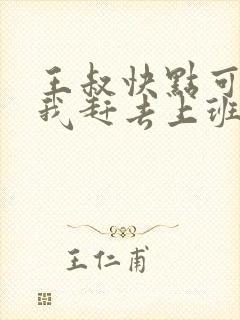 王叔快點可
我赶去上班
王仁甫